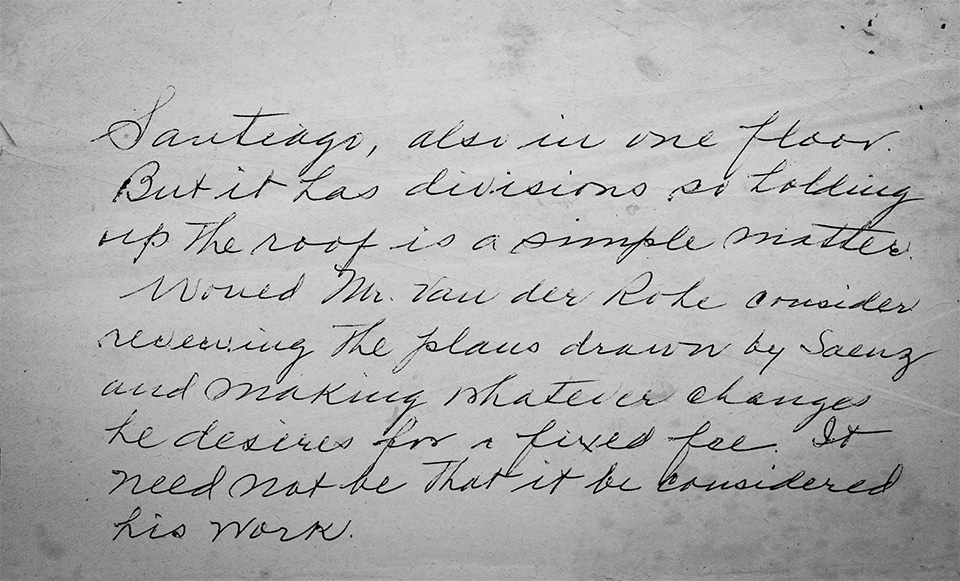 Santiago, also in one floor.
But it has divisions so holding
up the roof is a simple matter.
Would Mr. Van der Rohe consider
reveiwing the plans drawn by Saenz
and making whatever changes
he desires for a fixed fee. It
need not be that it be considered
his work.